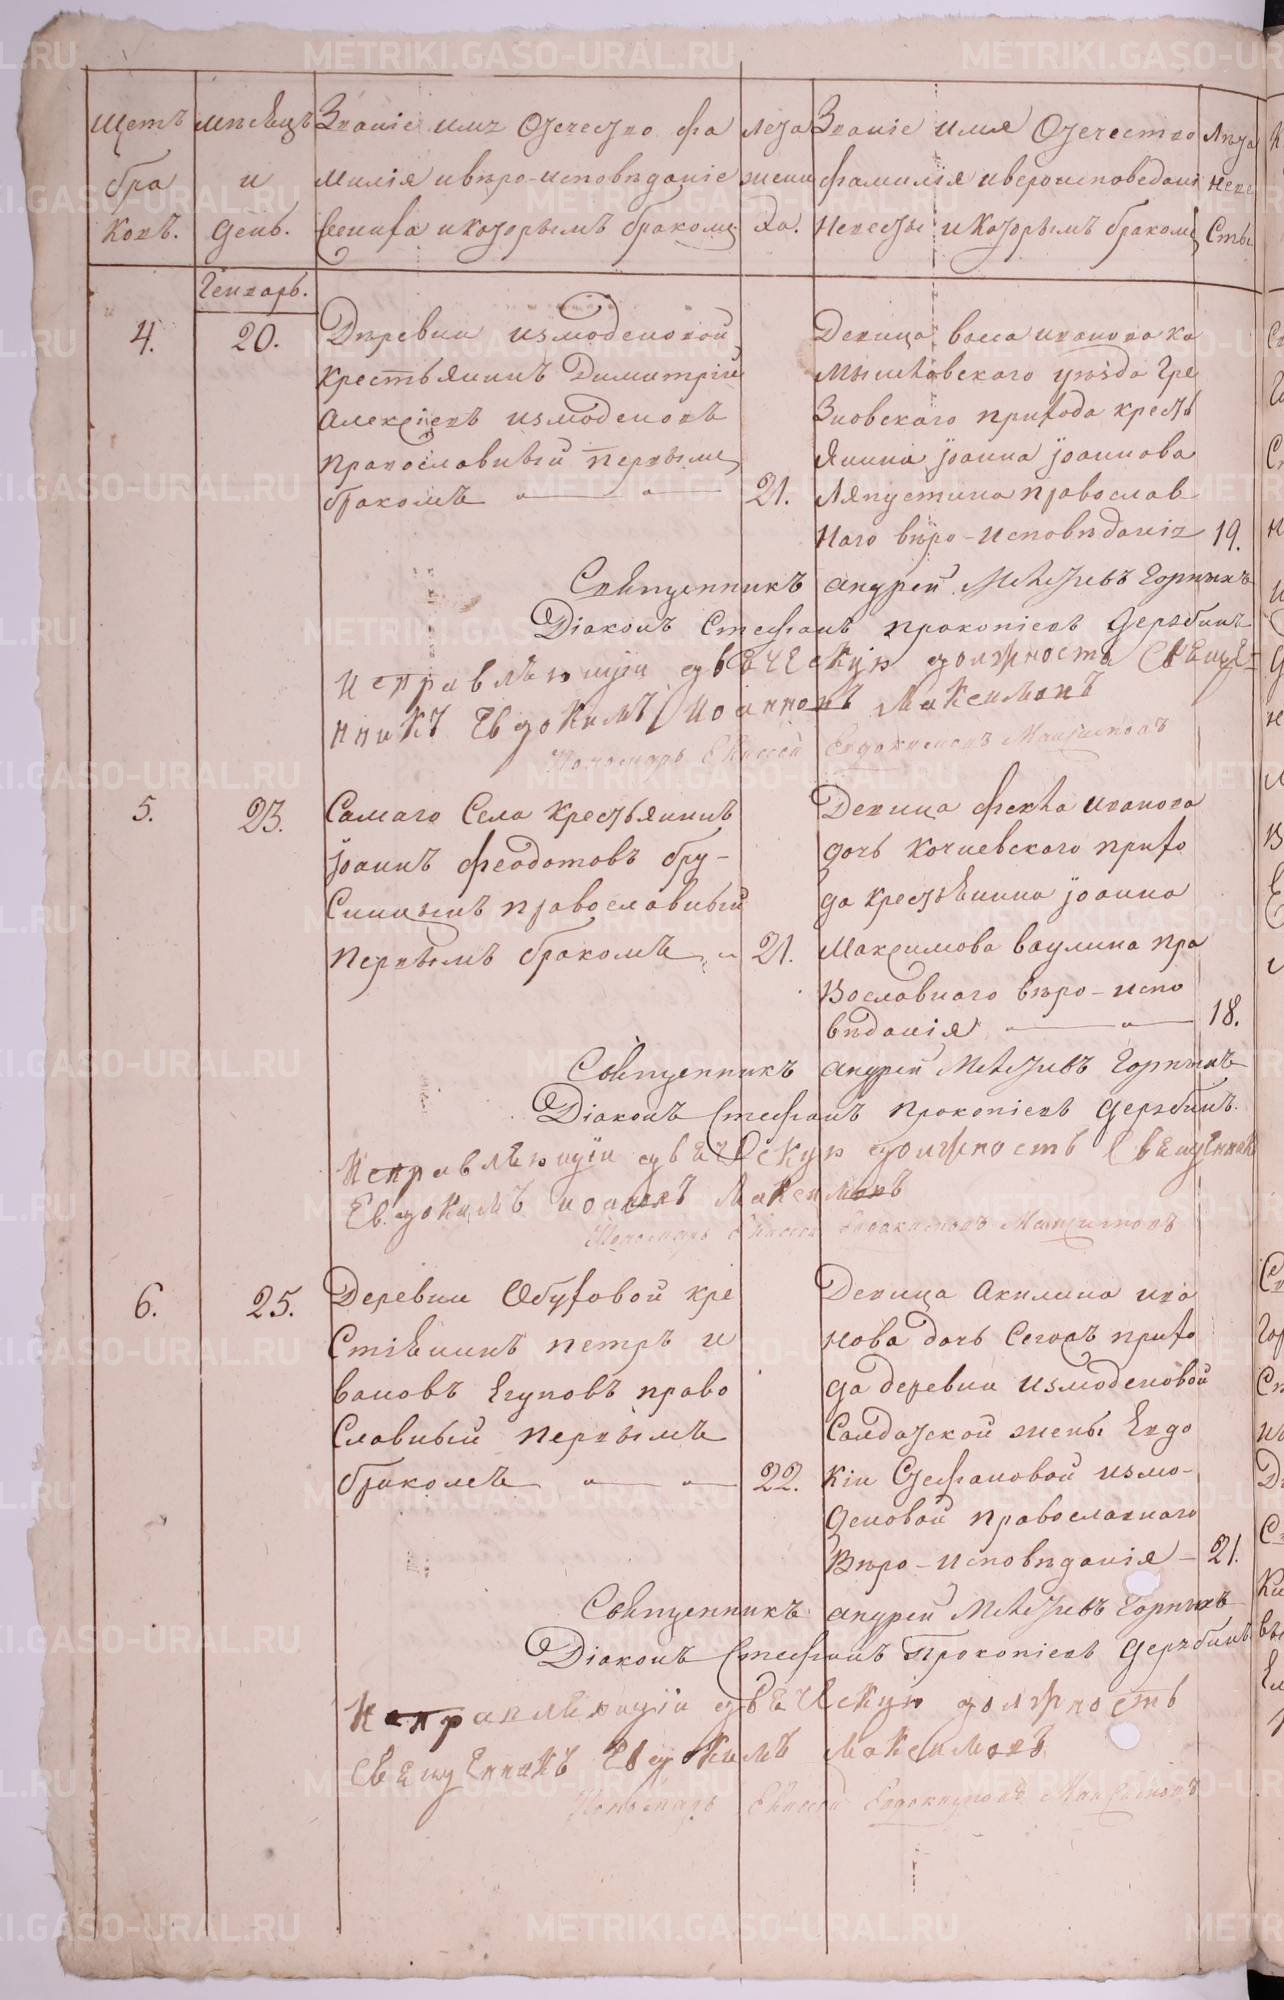 Щетъ бра ковъ.
мѣсяцъ и день.
Званіе имя Отечество фа милія и вѣро-исповѣданіе жениха и которымъ бракомъ
Лета жени ха.
Званіе имя Отечество фамилія и вероисповедані невесты и которымъ бракомъ
Лѣта неве Сты
Генварь.
4.
20.
Дѣревни измоденовой
крестьянинъ Димитрій
Алексѣевъ измоденовъ
православный первымъ
бракомъ
21.
Девица васса иванова ка
мышловскаго уѣзда Гре
Зновскаго прихода кресть
янина іоанна іоаннова
Ляпустина православ
наго вѣро-исповѣданія
19.
Священникъ андрей Горныхъ
Діаконъ Стефанъ прокопіевъ Дерябинъ
исправляющій дьяческую должность Свяще=
нникъ Евдокимъ Иоанновъ Максимовъ
Пономарь Елисей Евдокимовъ Максимовъ
5.
23.
Самаго Села крестьянинъ
іоаннъ феодотовъ бру-
Сницынъ православный
первымъ бракомъ
21.
Девица фекла иванова
дочь кочневскаго прихо
да крестьянина іоанна
Максимова ваулина пра
Вославнаго вѣро-испо
вѣданія
18.
Священникъ андрей Горныхъ
Діаконъ Стефанъ прокопіевъ Дерябинъ.
Исправляющій дьяческую должность Священник
Евдокимъ иоановъ Максимовъ
Пономарь Елисей Евдокимовъ Максимовъ
6.
25.
Деревни Обуховой кре
Стьянинъ петръ и
вановъ Егуповъ право
Славный первымъ
бракомъ
22.
Девица Акилина ива
нова дочь Сегожъ прихо
да деревни измоденовой
Салдатской жены Евдо
кіи Стефановой измо-
деновой православнаго
Вѣро-исповѣданія
21.
Священникъ андрей Горныхъ
Діаконъ Стефанъ Прокопіевъ Дерябинъ
Исправляющій дьяческую должность
Священникъ Евдокимъ максимовъ
Пономарь Елисей Евдокимовъ Максимовъ
METRIKI.GASO-URAL.RU